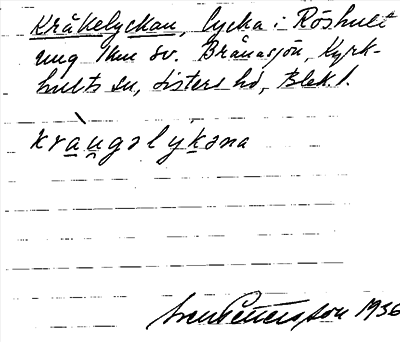 Kråkelyckan, lycka i Röshult
ung 1 km sv. Brånasjön, Kyrk-
hults sn, Listers hd, Blek. l.
kràngəlykəna
Pettersson 1936